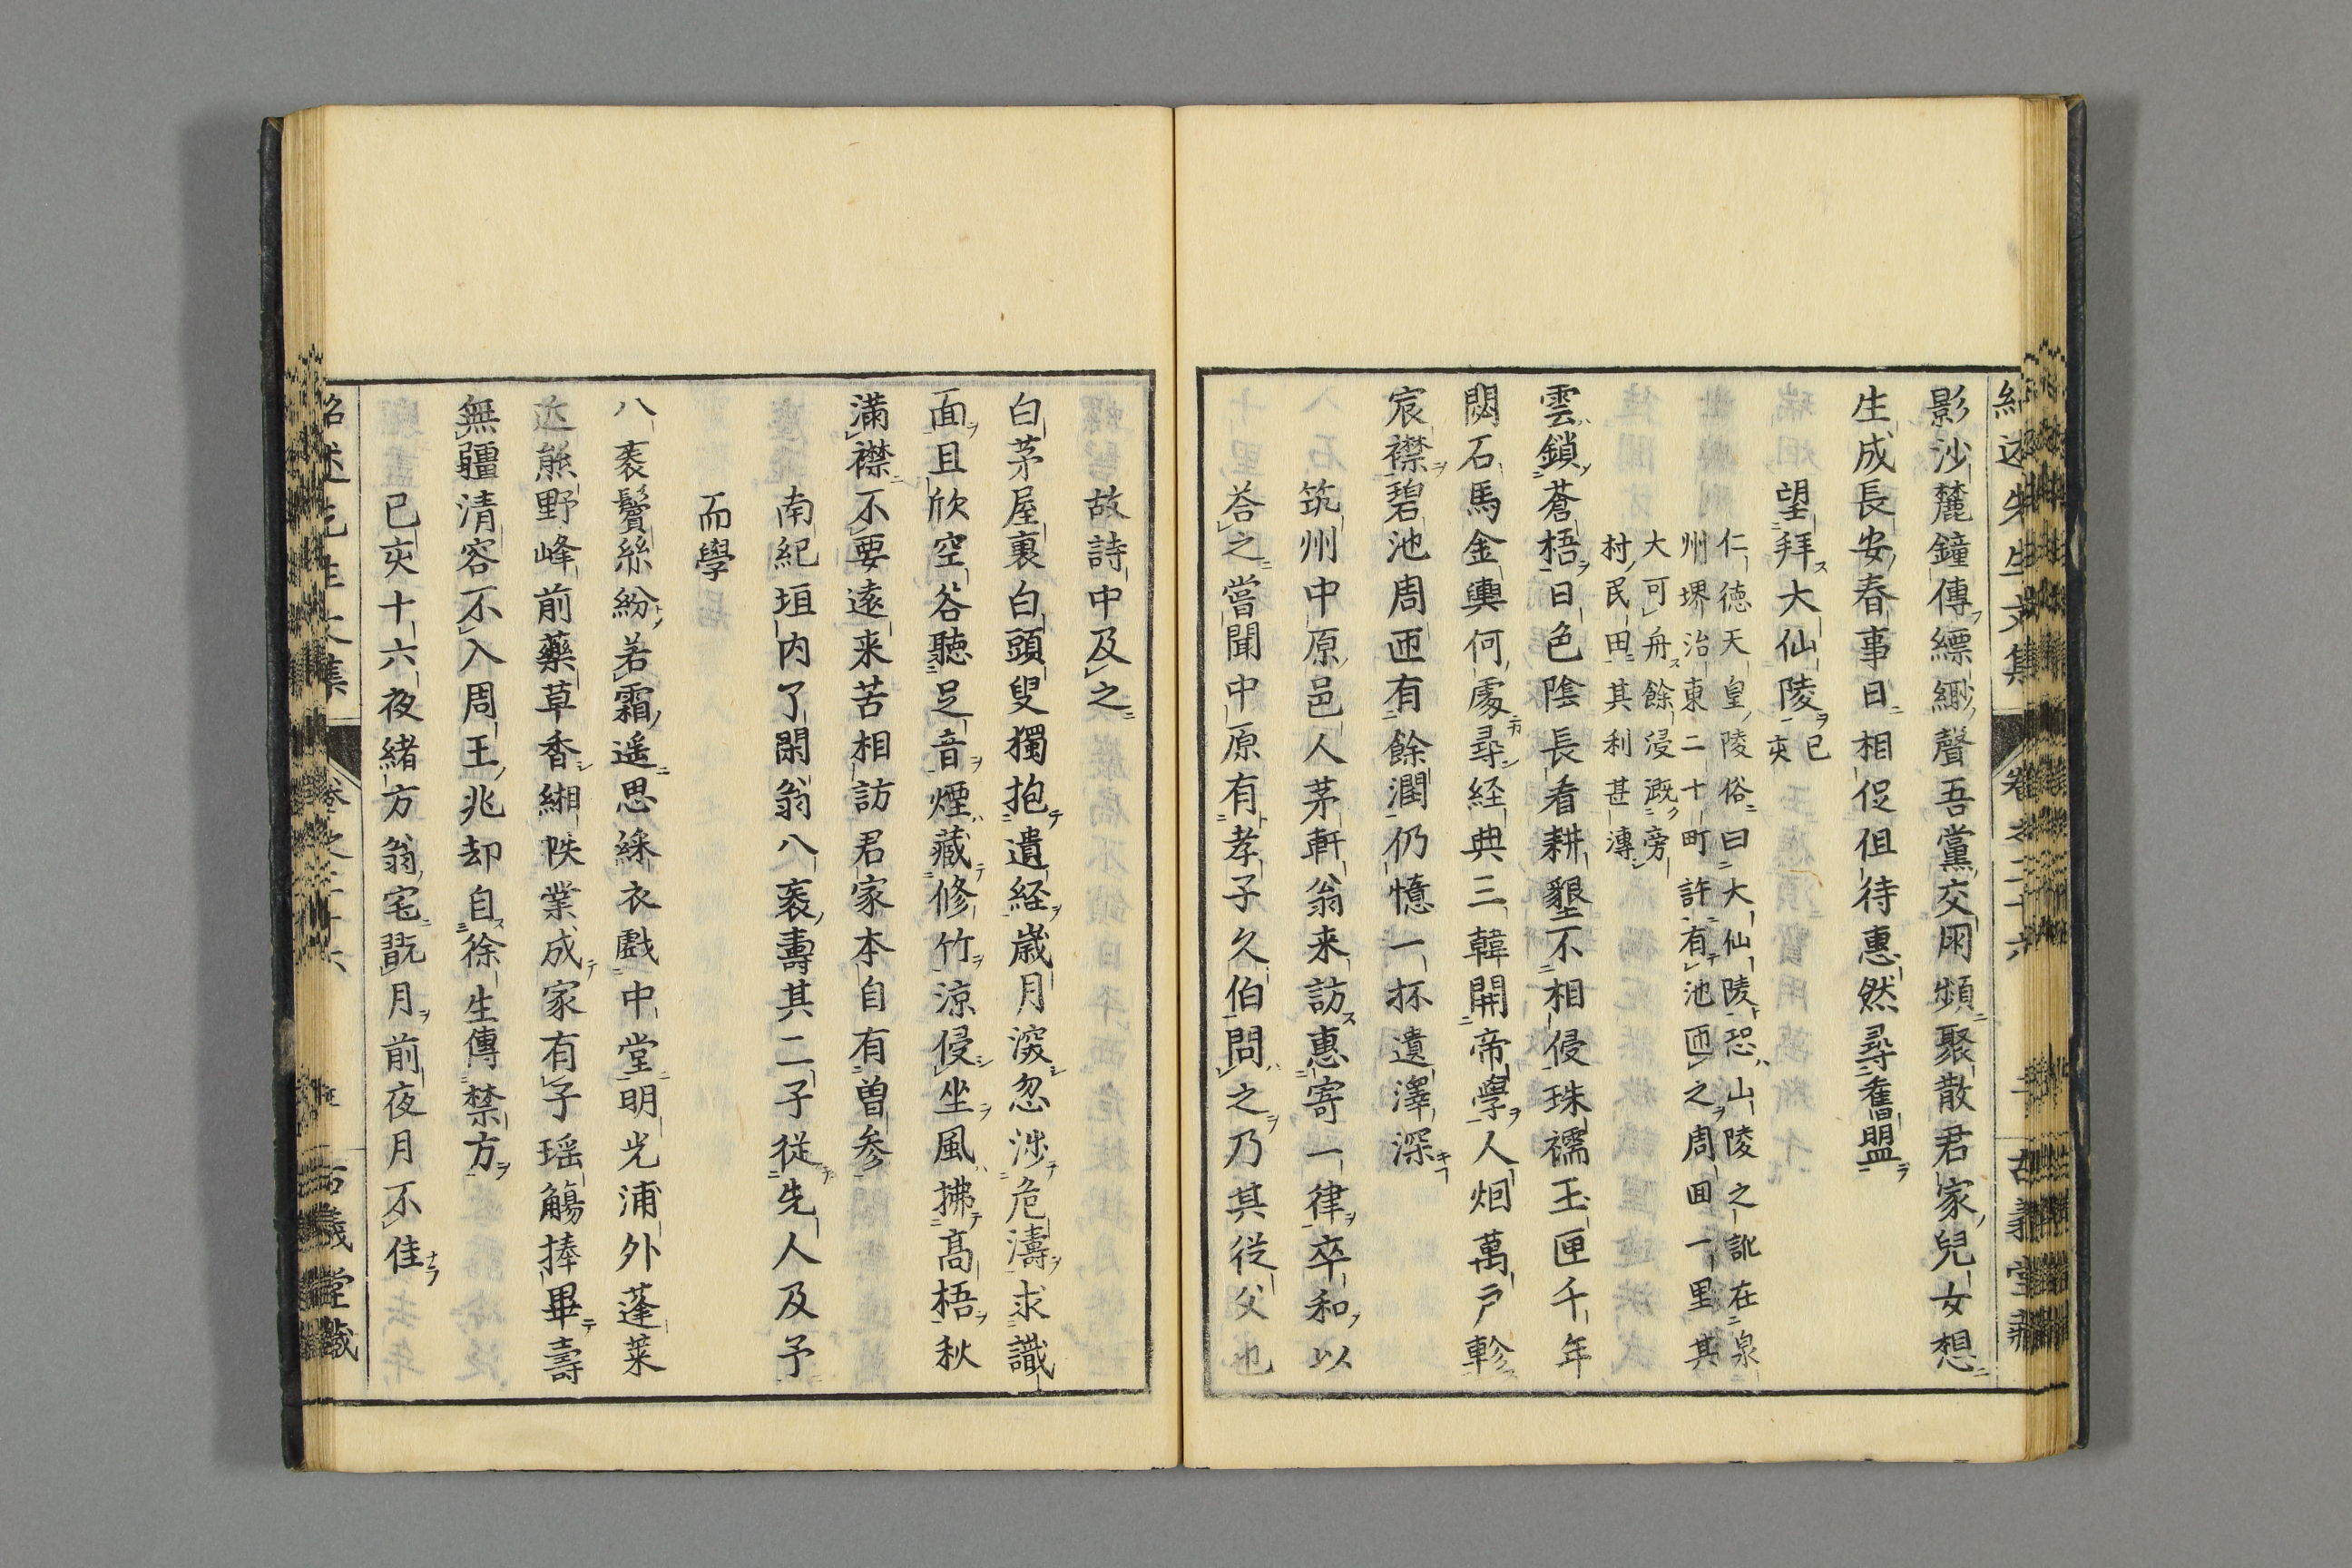 影沙麓鐘傳縹緲聲吾黨交朋頻聚散君家兒女想
生成長安春事日相促但待惠然尋舊盟
望拜大仙陵 已亥
仁德天皇陵俗曰大仙陵恐山陵之訛在泉
州堺治東二十町許有池匝之周囬一里其
大可舟餘浸漑旁
村民田其利甚溥
雲鎖蒼梧日色陰長看耕墾不相侵珠襦玉匣千年
閟石馬金輿何處尋経典三韓開帝學人烟萬戸軫
宸襟碧池周匝有餘潤仍憶一抔遺澤深
筑州中原邑人茅軒翁来訪惠寄一律卒和以
荅之嘗聞中原有孝子久伯問之乃其従父也
故詩中及之
白茅屋裏白頭叟獨抱遺経歳月深忽渉危濤求識
面且欣空谷聽足音煙藏修竹涼侵坐風拂髙梧秋
滿襟不要遠来苦相訪君家本自有曽参
南紀垣内了閑翁八袠壽其二子従先人及予
而學
八袠鬢絲紛若霜遥思綵衣戲中堂明光浦外蓬莱
近熊野峰前藥草香緗帙業成家有子瑶觴捧畢壽
無疆清容不入周王兆却自徐生傳禁方
已亥十六夜緒方翁宅翫月前夜月不佳
紹述先生文集 卷之二十六 古義堂藏